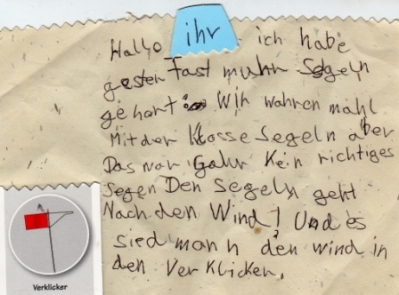 Hallo ihr ich habe
gestern fast muhr Segeln
gehort Wir wahren mahl
Mit der Klasse Segeln aber
Das war Gahr Kein richtiges
Segen Den Segeln geht
Nach den Wind! Und es
sied man h den wind in
den Verklicker.
Verklicker